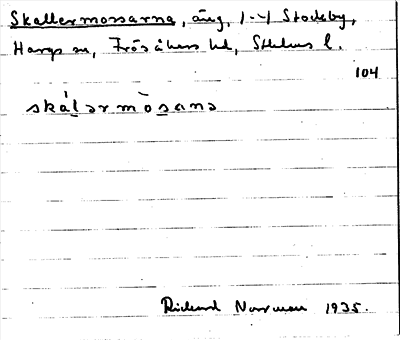 Skallermossarna, äng, 1-4 Stockby,
Hargs sn, Frösåkers hd, Sthlms l.
104
skálərmòsana
Richard Norrman 1935.